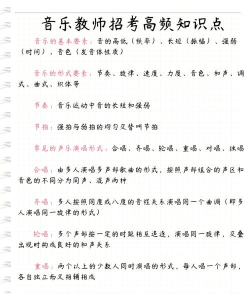 音乐教师招考高频知识点
音乐的基本要素：音的高低（频率）、长短（振幅）、强弱
（时间）、音色（发音体性质）
音乐的形式要素：节奏、旋律、速度、力度、音色、和声、调
式、曲式、织体等
节奏：音乐运动中音的长短和强弱
节拍：强拍与弱拍的均匀交替叫节拍
常见的声乐演唱形式：合唱、齐唱、轮唱、重唱、对唱、独唱
合唱：由多人演唱多声部歌曲的形式，按照声部组合的声区和
音色的不同分为同声、混声两种
齐唱：多人按照同度或八度的音程关系演唱同一个曲调（即多
人演唱同一旋律的形式）
轮唱：多个声部按一定的时距相互逐进，演唱同一旋律，交叠
出现时构成良好的和声关系
重唱：两个以上的少数人同时演唱的形式，每人唱一个声部，
各自独立而又相辅相成